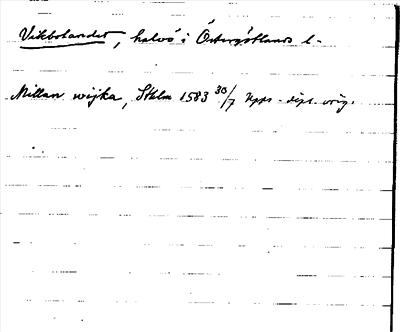 Vikbolandet, halvö i Östergötlands l.
Millan wijka, Sthlm 1583 30/7 Upps. dipl. orig.